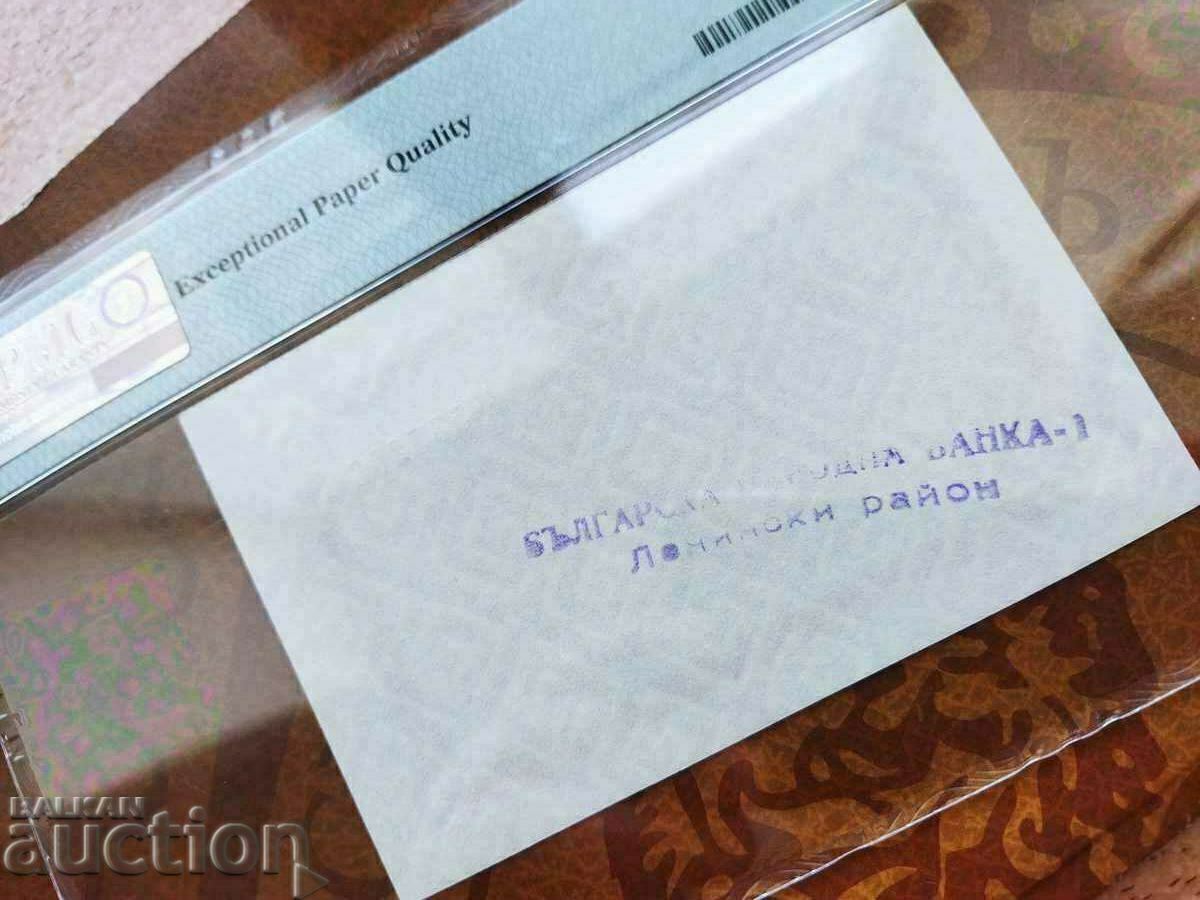 Exceptional Paper Quality
PMG
БЪЛГАРСКА НАРОДНА БАНКА-1
Ленински район
BALKAN
auction